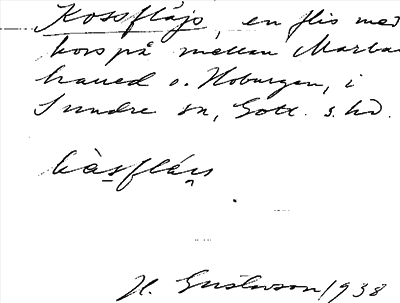 Kossflájs, en flis med
kors på mellan Marba
haued o. Hoburgen, i
Sundre sn, Gotl. s. hd.
kàsfláis
H. Gustavson 1938